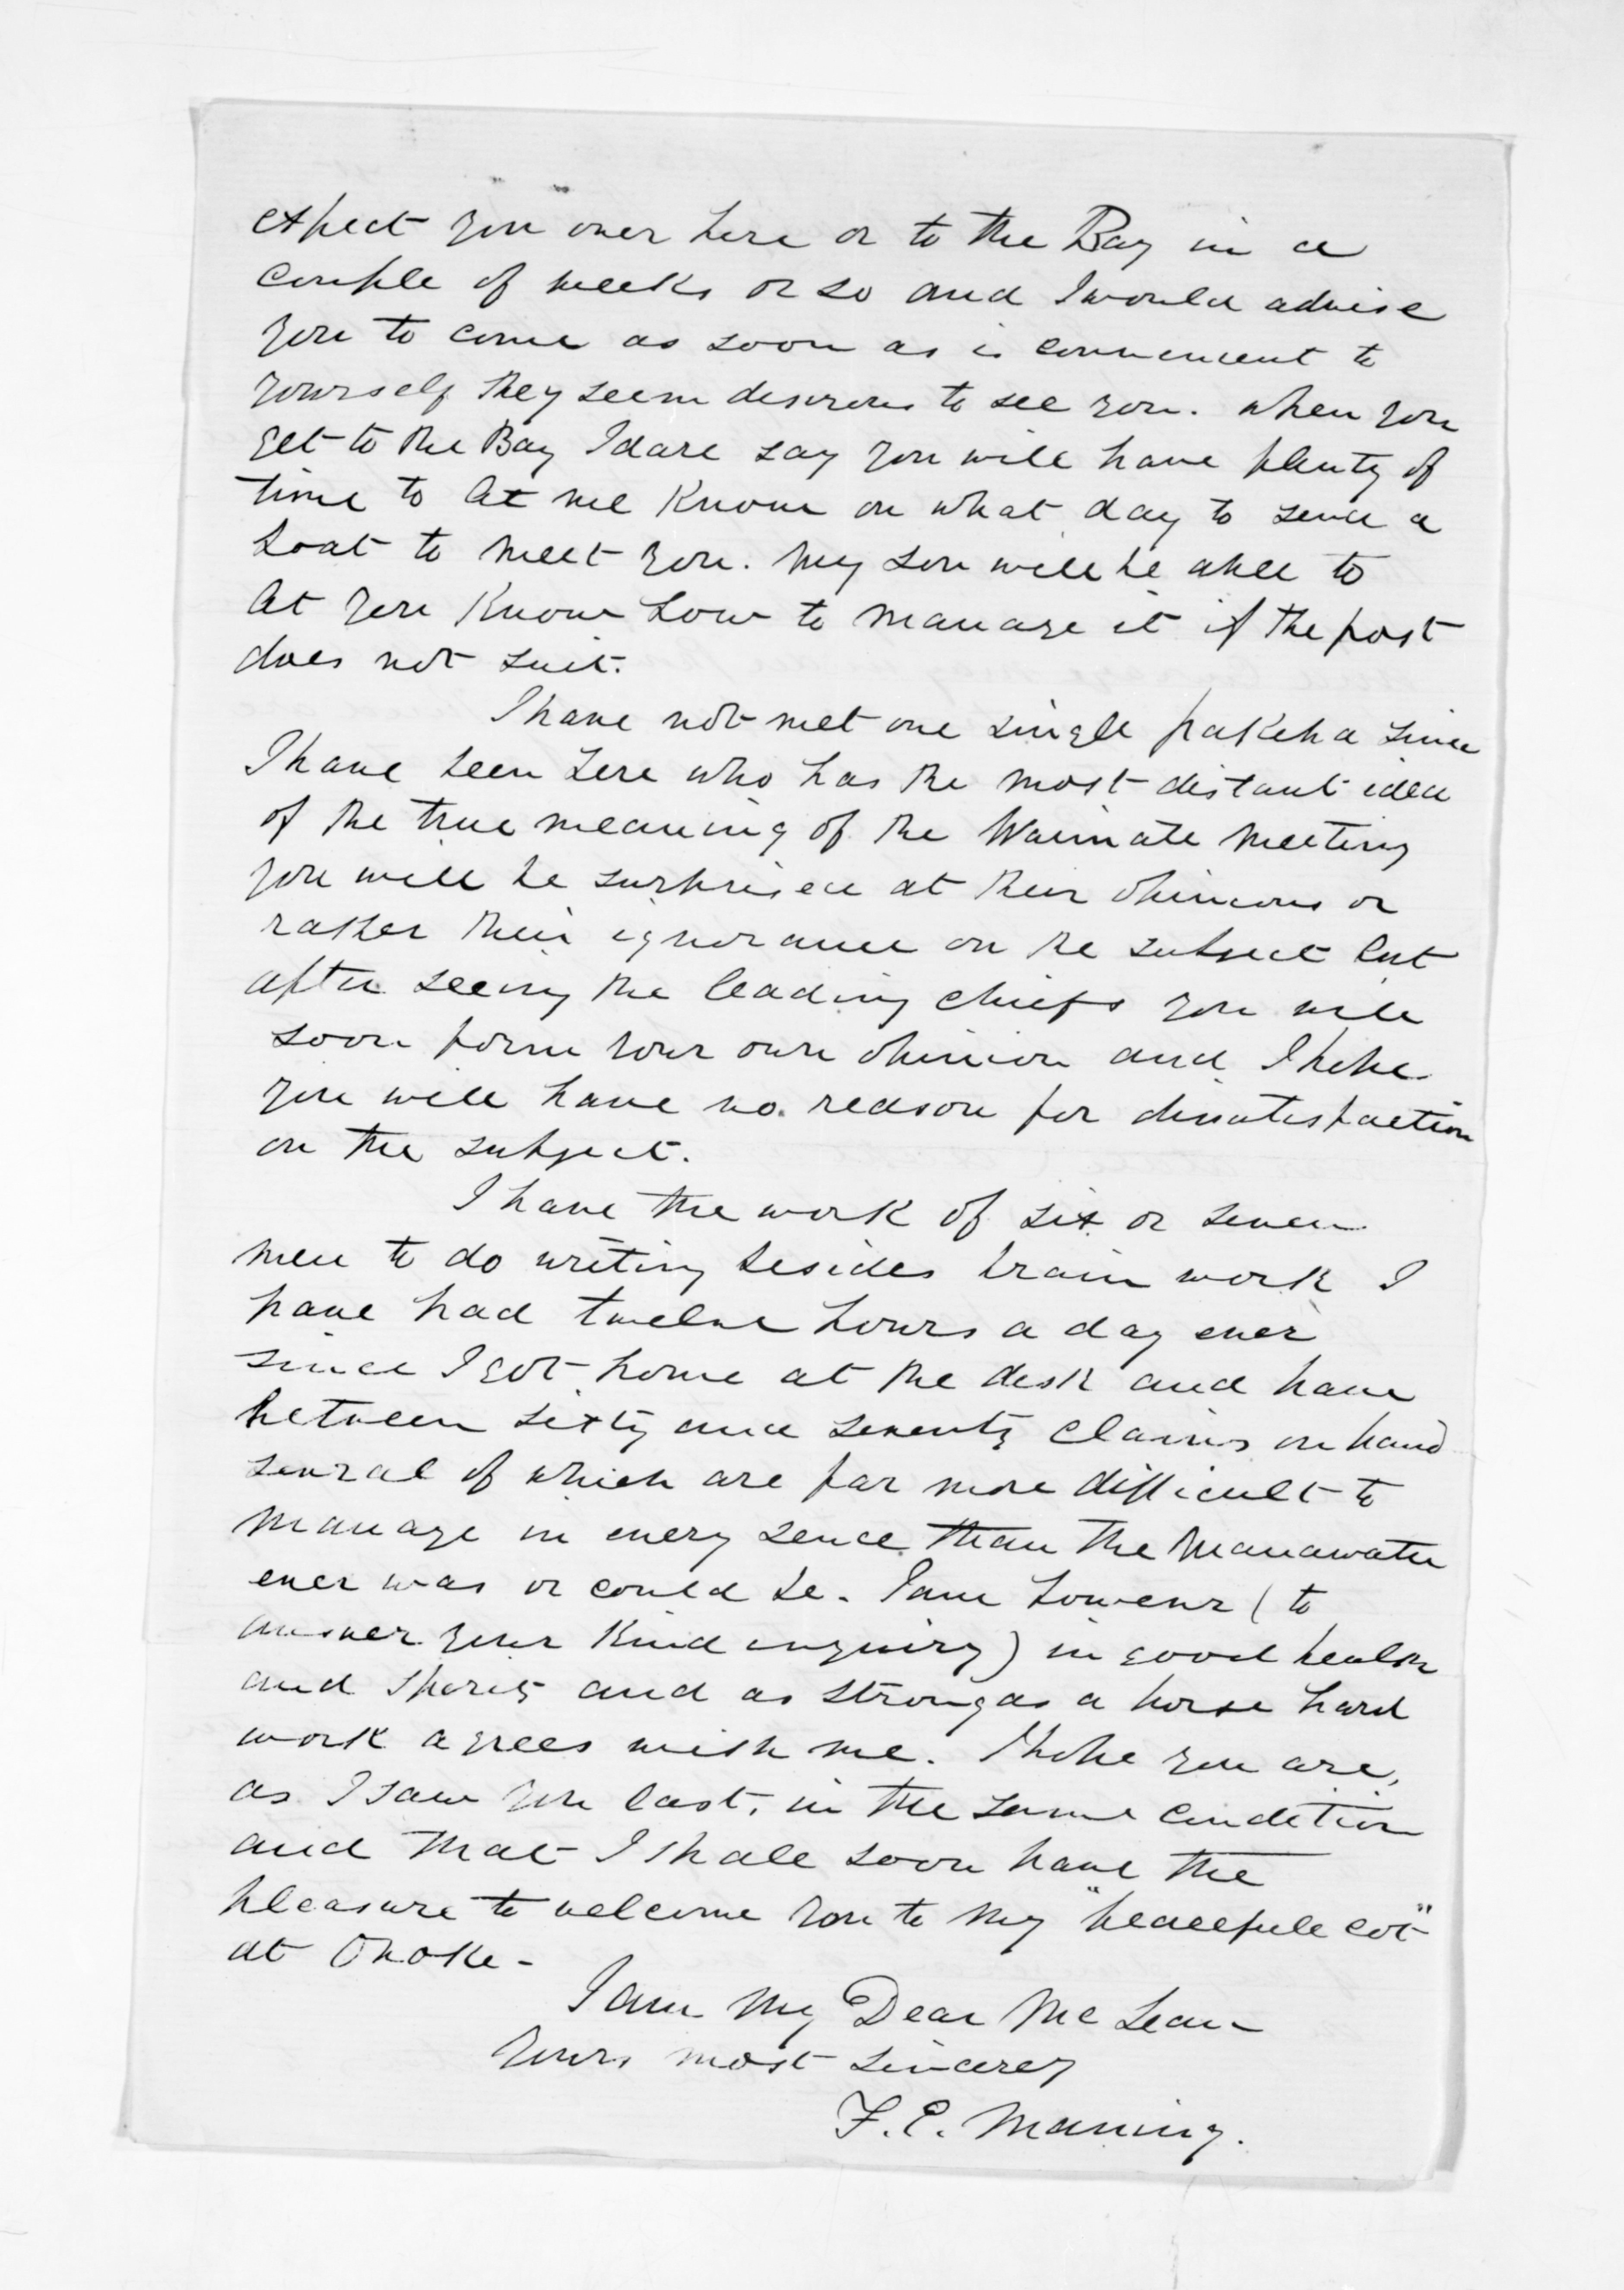 expect you over here or to the Bay in a
couple of weeks or so and I would advise
you to come as soon as is convenient to
yourself they seem desirous to see you. when you
get to the Bay I dare say you will have plenty of
time to let me know on what day to send a
boat to meet you. my son will be able to
let you know how to manage it if the post
does not suit.
I have not met one single pakeha since
I have been here who has the most distant idea
of the true meaning of the Waimate meeting
you will be surprised at their opinions or
rather their ignorance on the subject but
after seeing the leading chiefs you will
soon form your own opinion and I hope
you will have no reason for dissatisfaction
on the subject.
I have the work of six or seven
men to do writing besides brain work I
have had twelve hours a day ever
since I got home at the desk and have
between sixty and seventy claims on hand
several of which are far more difficult to
manage in every sence than the Manawatu
ever was or could be. I am however (to
answer your kind inquiry) in good health
and spirits and as strong as a horse hard
work agrees with me. I hope you are,
as I saw you last, in the same condition
and that I shall soon have the
pleasure to welcome you to my "peacefull cot"
at Onoke -
I am my Dear McLean
yours most sincerey
F. E. Maning.